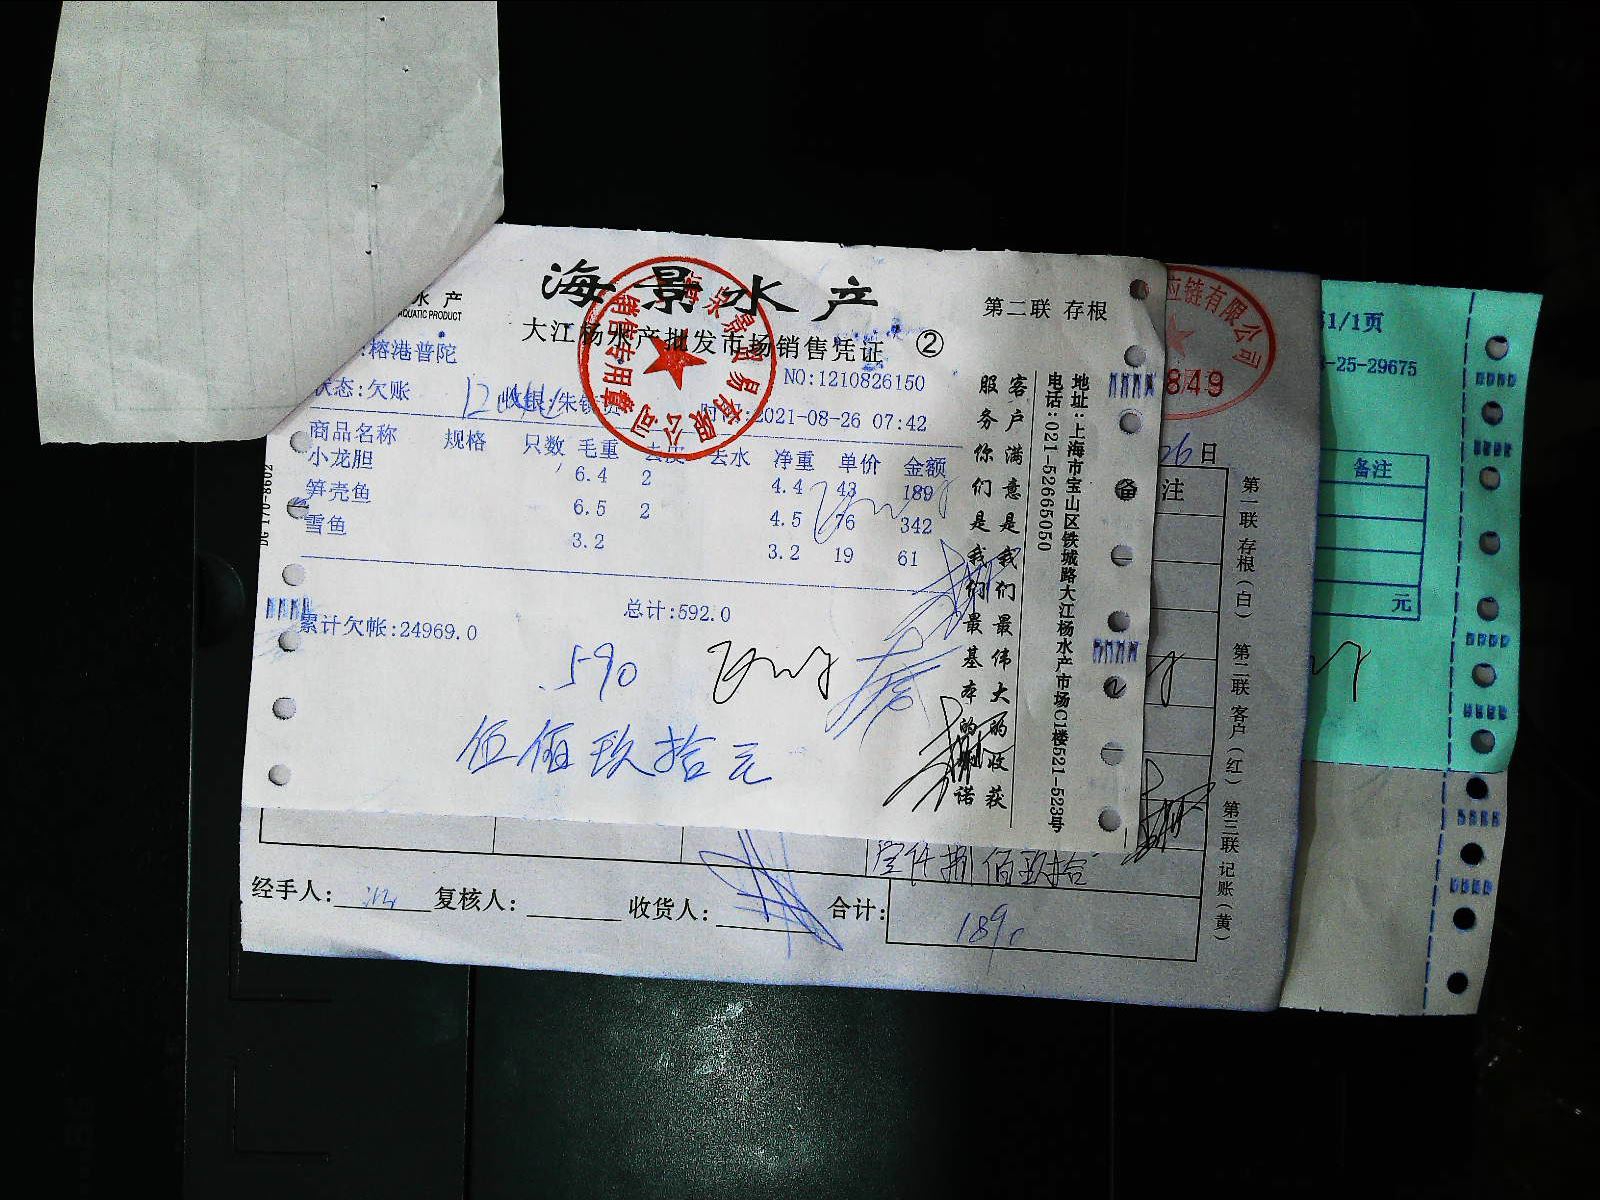 海景水产
水产
AQUATIC PRODUCT
第二联 存根
大江杨水产批发市场销售凭证 ②
:榕港普陀
NO:1210826150
状态:欠账 收银:朱 时 :2021-08-26 07:42
商品名称 规格 只数 毛重 去皮 去水 净重 单价 金额
小龙胆 6.4 2 4.4 43 189
笋壳鱼 6.5 2 4.5 76 342
雪鱼 3.2 3.2 19 61
总计:592.0
累计欠帐:24969.0
590
伍佰玖拾元
销售专用章
客户满意是我们最伟大的收获
服务你们是我们最基本的 诺
地址:上海市宝山区铁城路大江杨水产市场C1楼521-523号
电话:021-52665050
应链有限公司
849
26日
备注
第一联 存根(白) 第二联 客户(红) 第三联 记账(黄)
壹仟捌佰玖拾
经手人: 复核人: 收货人: 合计:
189
1/1页
-25-29675
备注
元